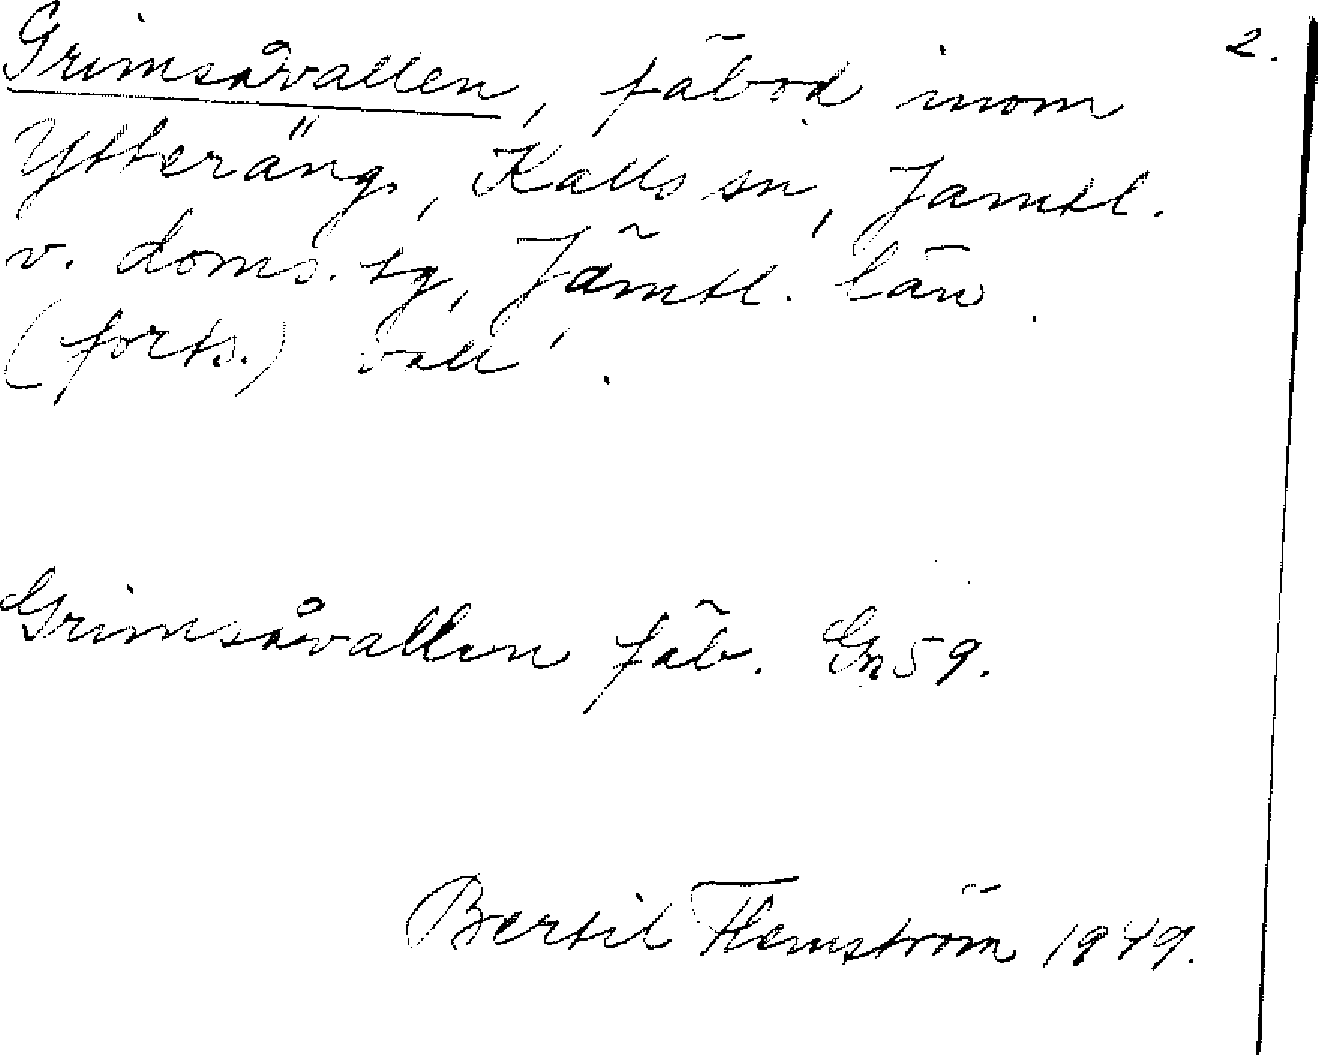 2.
Grimsåvallen, fäbod inom
Ytteräng, Kalls sn, Jämtl.
v. doms. tg, Jämtl. län.
(forts.) vall'.
Grimsåvallen fäb. Gn 59.
Bertil Flemström 1949.